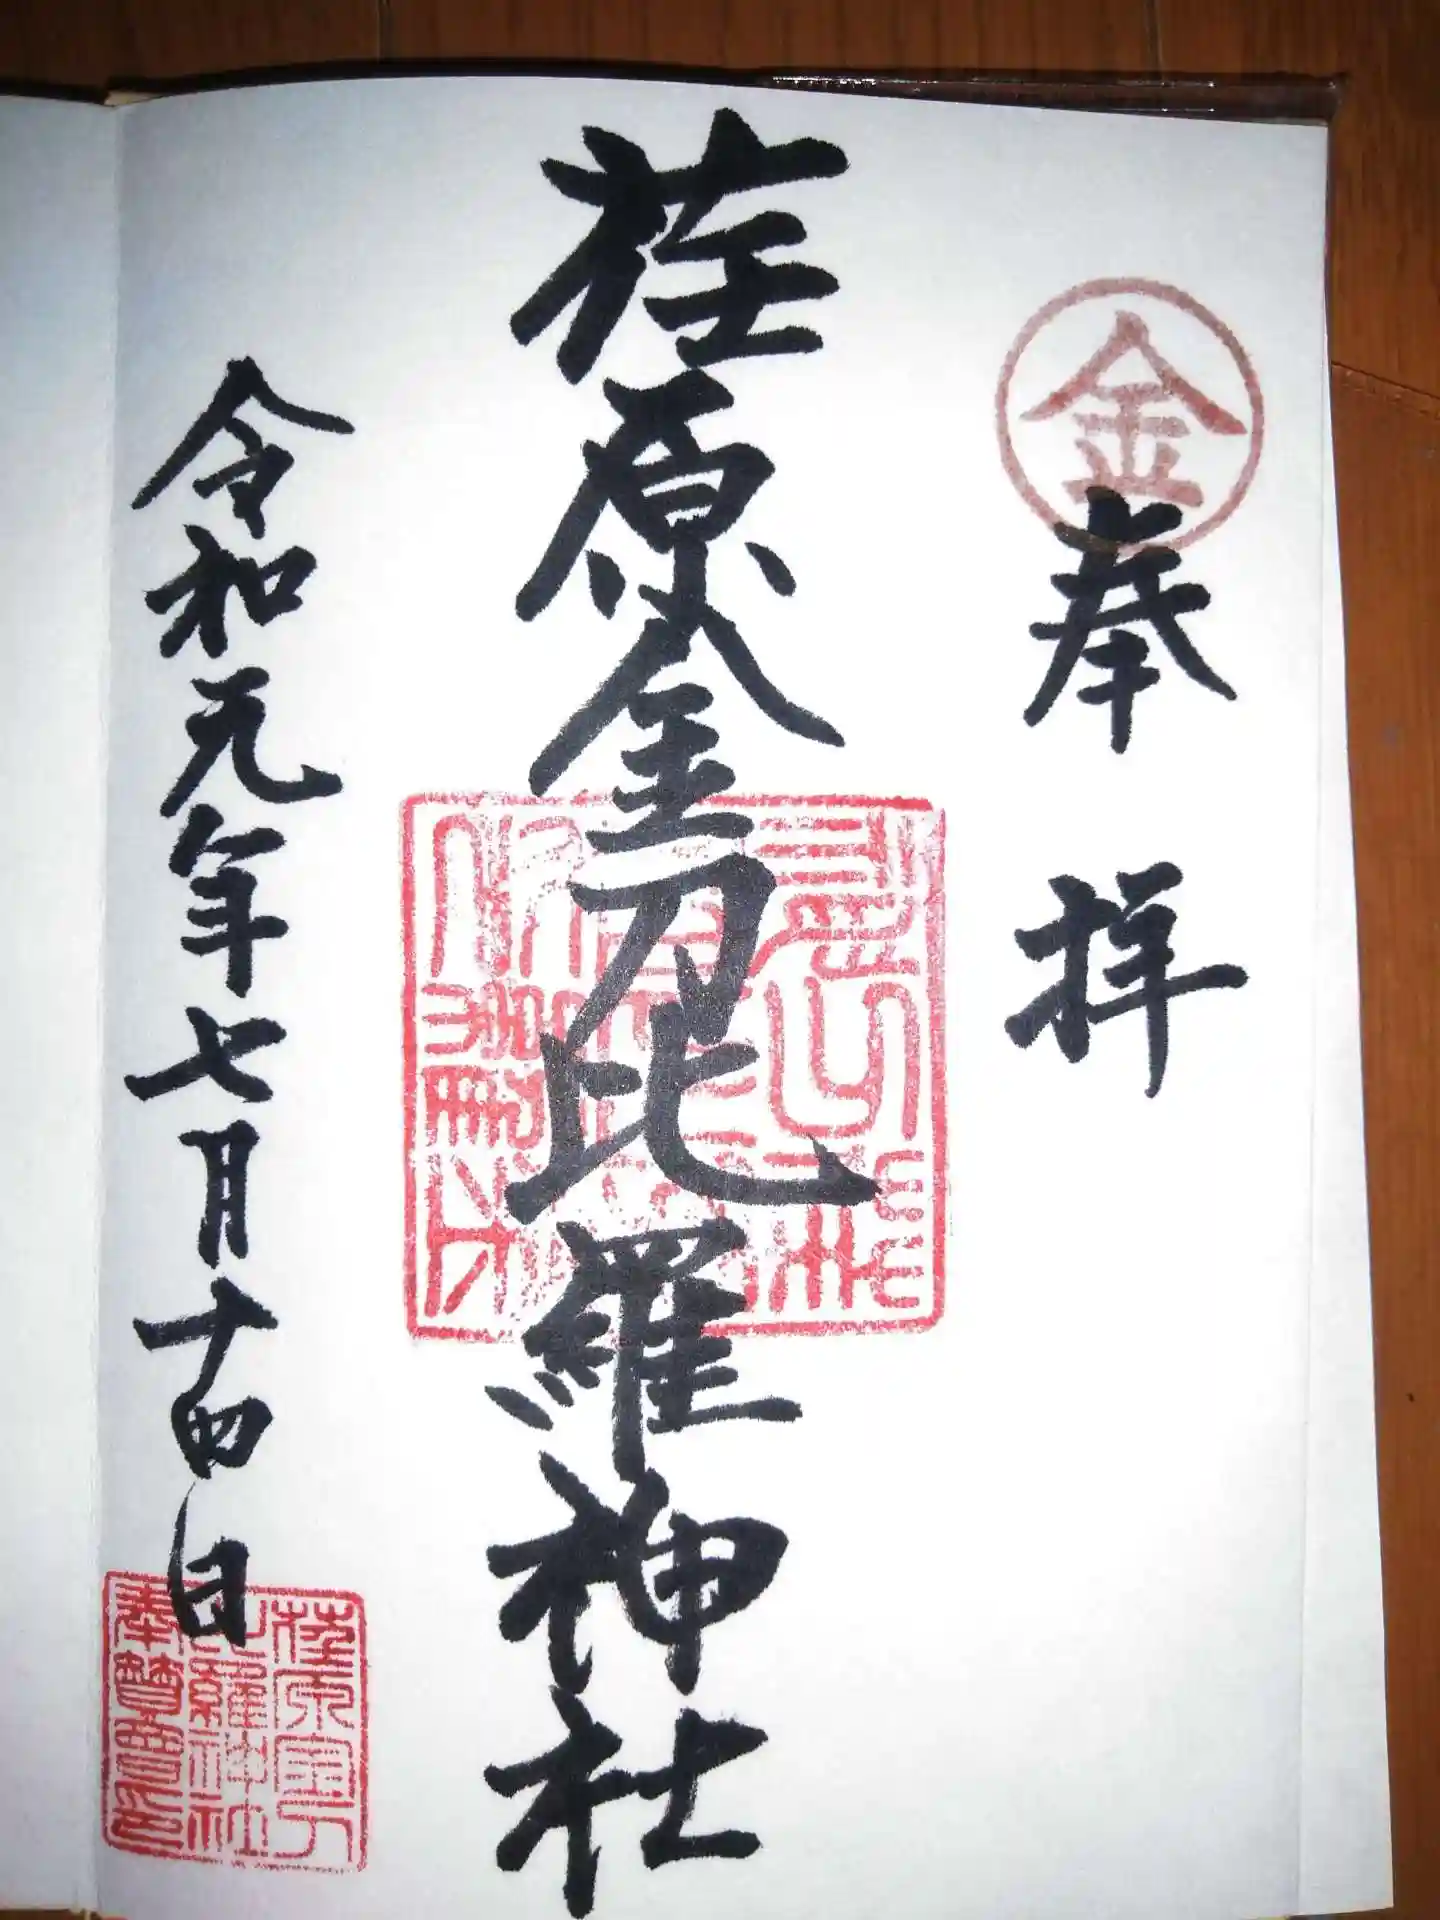 金
奉拝
荏原金刀比羅神社
令和元年七月十四日
荏原金刀
比羅神社
奉賛会印